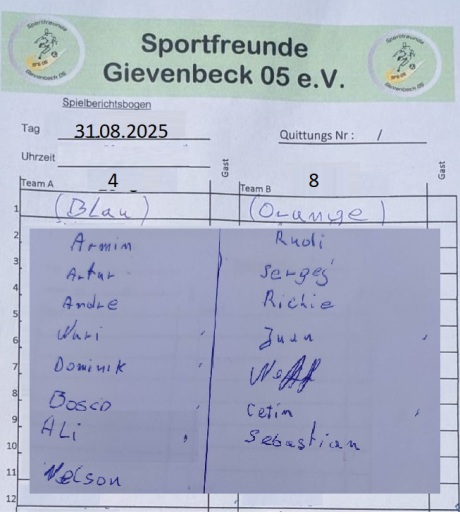 Sportfreunde
Gievenbeck 05 e.V.
Spielberichtsbogen
Tag 31.08.2025 Quittungs Nr : /
Uhrzeit
Gast Gast
Team A 4 Team B 8
1 (Blau) (Orange)
2 Armin Rudi
3 Artur Sergej
4 Andre Richie
5 Nuri Juan
6
7 Dominik
8 Bosco Cetin
9 ALi Sebastian
10
11 Nelson
12